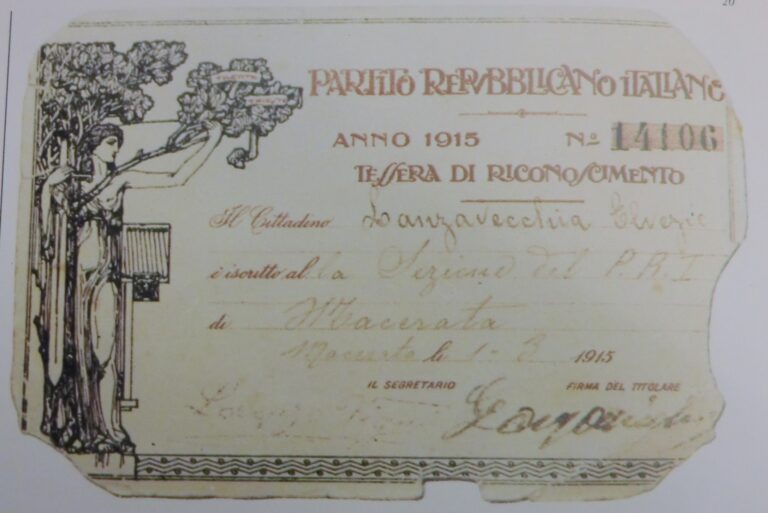 20
TRENTO
TRIESTE
PARTITO REPVBBLICANO ITALIANO
ANNO 1915 No 14106
TESSERA DI RICONOSCIMENTO
Il Cittadino Lanzavecchia Elvezio
è iscritto al la Sezione del P.R.I
di Macerata
Macerata li 1- 3 1915
IL SEGRETARIO FIRMA DEL TITOLARE